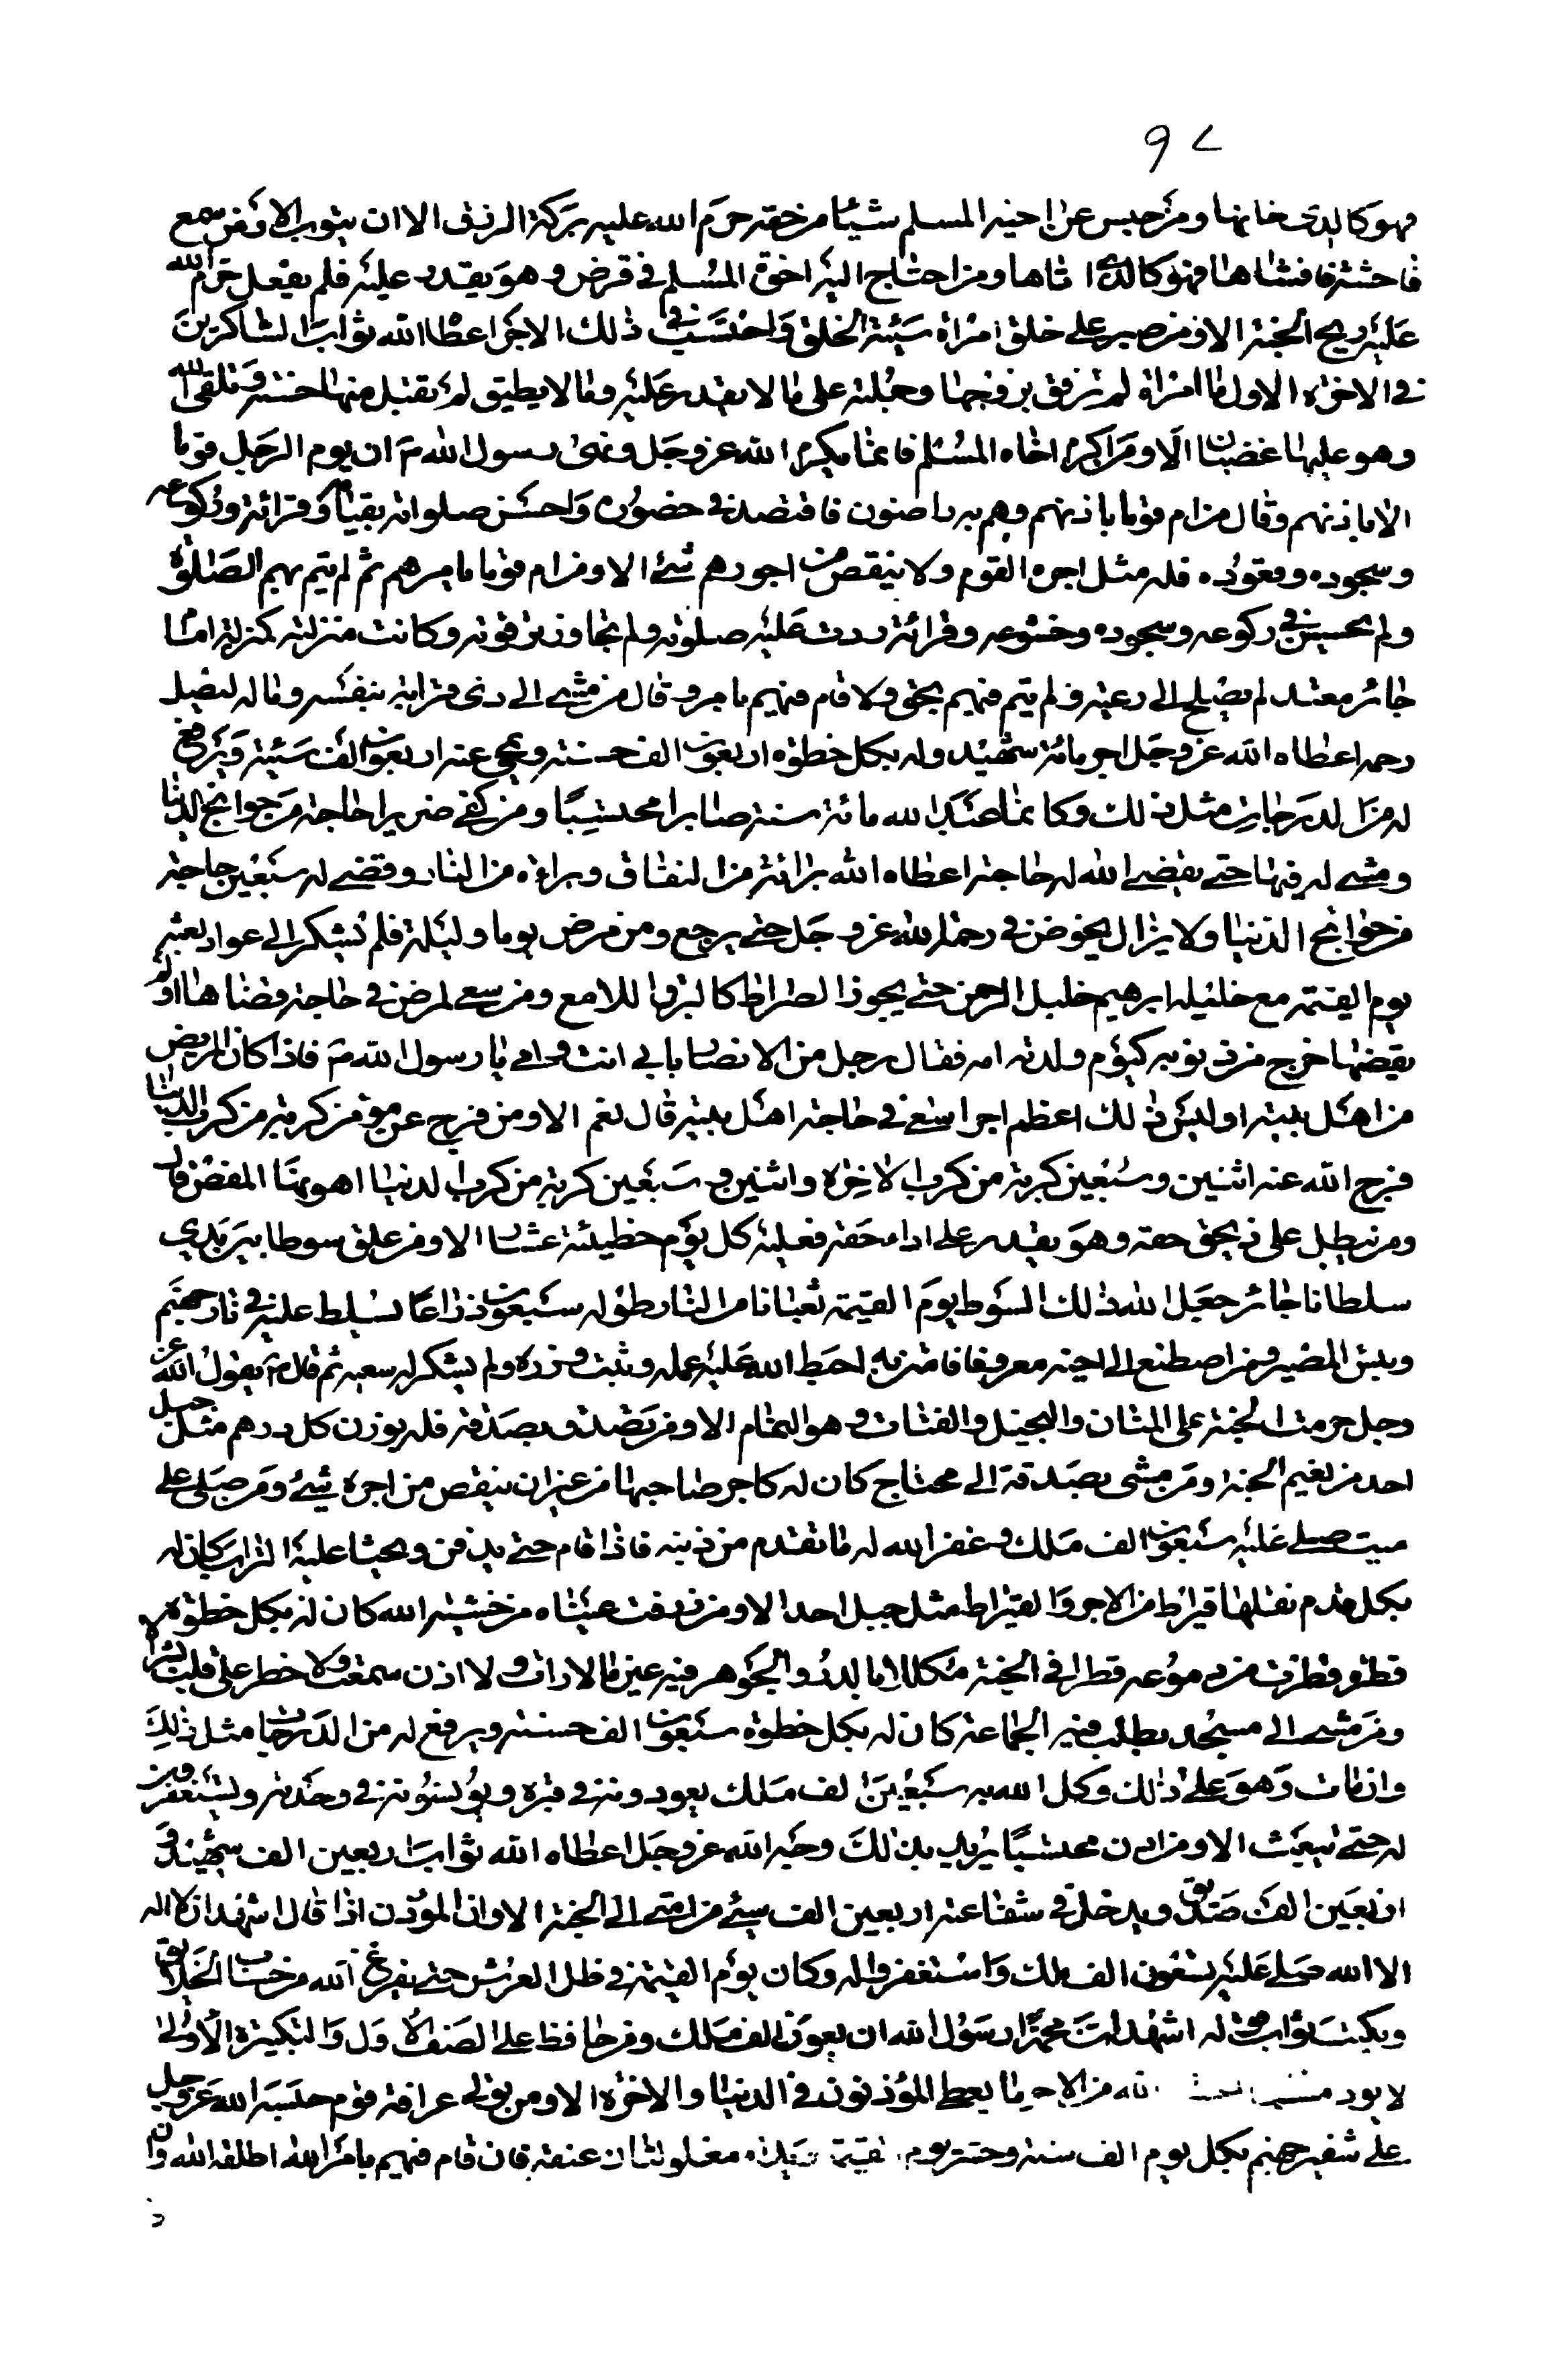 ٩٧
فهو كالذي خانها ومن حبس عن اخيه المسلم شيئا من حقه حرم الله عليه بركة الرزق الا ان يتوب الا ومن سمع
فاحشة فافشاها فهو كالذي اتاها ومن احتاج اليه اخوه المسلم في قرض وهو يقدر عليه فلم يفعل حرم الله
عليه ريح الجنة الا ومن صبر على خلق امراة سيئة الخلق واحتسب في ذلك الاجر اعطاه الله ثواب الشاكرين
في الاخرة الا وايما امراة لم ترفق بزوجها وحملته على ما لا يقدر عليه وما لا يطيق لم تقبل منها حسنة وتلقى الله
وهو عليها غضبان الا ومن اكرم اخاه المسلم فانما يكرم الله عز وجل ونهى رسول الله ص ان يوم الرجل قوما
الا باذنهم وقال من ام قوما باذنهم وهم به راضون فاقتصد في حضوره واحسن صلواته بقيامه وقرائته وركوعه
وسجوده وقعوده فله مثل اجر القوم ولا ينقص من اجورهم شئ الا ومن ام قوما بامرهم ثم لم يتم بهم الصلوة
ولم يحسن في ركوعه وسجوده وخشوعه وقرائته ردت عليه صلوته ولم تجاوز ترقوته وكانت منزلته كمنزلة امام
جائر معتد لم يصلح الى رعيته ولم يقم فيهم بحق ولا قام فيهم بامر وقال من مشى الى ذي قرابة بنفسه وماله ليصل
رحمه اعطاه الله عز وجل اجر مائة شهيد وله بكل خطوة اربعون الف حسنة ويمحي عنه اربعون الف سيئة ويرفع
له من الدرجات مثل ذلك وكانما عبد الله مائة سنة صابرا محتسبا ومن كفى ضريرا حاجة من حوائج الدنيا
ومشى له فيها حتى يقضي الله له حاجته اعطاه الله برائة من النفاق وبراءة من النار وقضى له سبعين حاجة
من حوائج الدنيا ولا يزال يخوض في رحمة الله عز وجل حتى يرجع ومن مرض يوما وليلة فلم يشك الى عواده بعثه
يوم القيمة مع خليله ابرهيم خليل الرحمن حتى يجوز الصراط كالبرق اللامع ومن سعى لمريض في حاجة قضاها او لم
يقضها خرج من ذنوبه كيوم ولدته امه فقال رجل من الانصار بابي انت وامي يا رسول الله ص فاذا كان المريض
من اهل بيته اوليس ذلك اعظم اجرا اذا سعى في حاجة اهل بيته قال نعم الا ومن فرج عن مؤمن كربة من كرب الدنيا
فرج الله عنه اثنين وسبعين كربة من كرب الاخرة واثنين وسبعين كربة من كرب الدنيا اهونها المغص قال
ومن يبطل على ذي حق حقه وهو يقدر على اداء حقه فعليه كل يوم خطيئة عشار الا ومن علق سوطا بين يدي
سلطان جائر جعل الله ذلك السوط يوم القيمة ثعبانا من النار طوله سبعون ذراعا يسلط عليه في نار جهنم
وبئس المصير ومن اصطنع الى اخيه معروفا فامتن به احبط الله عليه عمله وثبت وزره ولم يشكر له سعيه ثم قال ص يقول الله عز
وجل حرمت الجنة على المنان والبخيل والقتات وهو النمام الا ومن تصدق بصدقة فله بوزن كل درهم مثل جبل
احد من نعيم الجنة ومن مشى بصدقة الى محتاج كان له كاجر صاحبها من غير ان ينقص من اجره شئ ومن صلى على
ميت صلى عليه سبعون الف ملك وغفر الله له ما تقدم من ذنبه فاذا قام حتى يدفن ويحثا عليه التراب كان له
بكل قدم نقلها قيراط من الاجر والقيراط مثل جبل احد الا ومن ذرفت عيناه من خشية الله كان له بكل
قطرة قطرت من دموعه قطرا في الجنة مكللا بالدر والجوهر فيه عين ما لا رات ولا اذن سمعت ولا خطر على قلب بشر
ومن مشى الى مسجد يطلب فيه الجماعة كان له بكل خطوة سبعون الف حسنة ويرفع له من الدرجات مثل ذلك
وان مات وهو على ذلك وكل الله به سبعين الف ملك يعودونه في قبره ويؤنسونه في وحدته ويستغفرون
له حتى يبعث الا ومن اذن محتسبا يريد بذلك وجه الله عز وجل اعطاه الله ثواب اربعين الف شهيد و
اربعين الف صديق ويدخل في شفاعته اربعين الف مسئ من امتي الى الجنة الا وان المؤذن اذا قال اشهد ان لا اله
الا الله صلى عليه تسعون الف ملك واستغفروا له وكان يوم القيمة في ظل العرش حتى يفرغ الله من حساب الخلايق
ويكتب ثواب قوله اشهد ان محمدا رسول الله اربعون الف ملك ومن حافظ على الصف الاول والتكبيرة الاولى
لا يوذ الله من الاجر ما يعطى المؤذنون في الدنيا والاخرة الا ومن تولى عرافة قوم حبسه الله عز وجل
على شفير جهنم بكل يوم الف سنة وحشر يوم القيمة ويداه مغلولتان عنقه فان قام فيهم بامر الله اطلقه الله وان